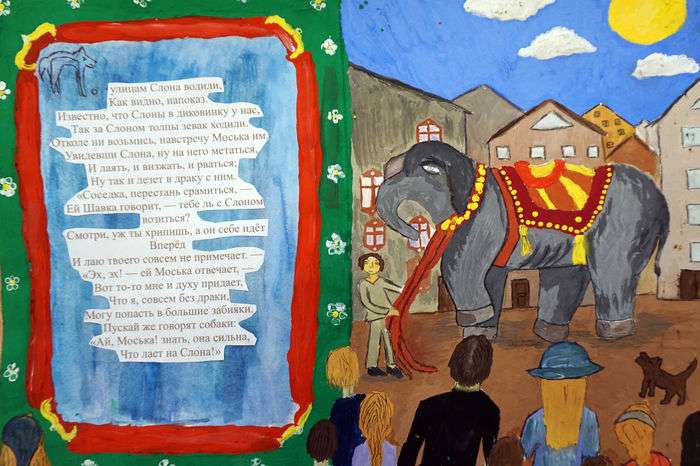 улицам Слона водили,
Как видно, напоказ.
Известно, что Слоны в диковинку у нас,
Так за Слоном толпы зевак ходили.
Отколе ни возьмись, навстречу Моська им
Увидевши Слона, ну на него метаться,
И лаять, и визжать, и рваться;
Ну так и лезет в драку с ним.
«Соседка, перестань срамиться, —
Ей Шавка говорит, — тебе ль с Слоном
возиться?
Смотри, уж ты хрипишь, а он себе идёт
Вперёд
И лаю твоего совсем не примечает. —
«Эх, эх! — ей Моська отвечает, —
Вот то-то мне и духу придает,
Что я, совсем без драки,
Могу попасть в большие забияки.
Пускай же говорят собаки:
«Ай, Моська! знать, она сильна,
Что лает на Слона!»